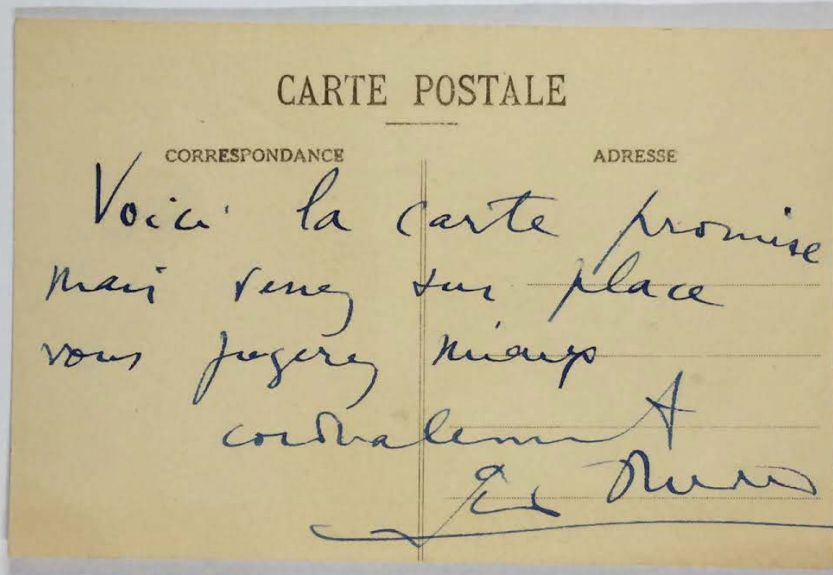 CARTE POSTALE
CORRESPONDANCE
ADRESSE
Voici la carte promise
mais venez sur place
vous jugerez mieux
cordialement